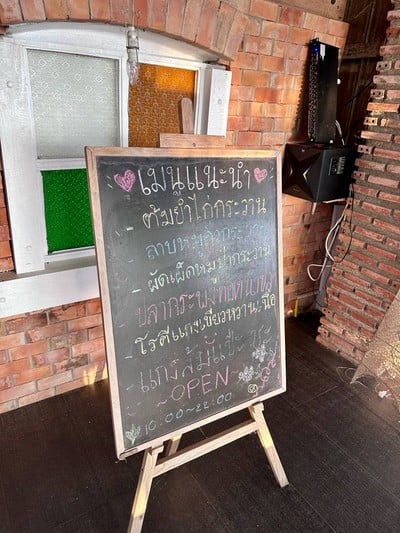 เมนูแนะนำ
- ต้มยำไก่กระวาน
- ลาบหมู
- ผัดเผ็ดหมูป่ากระวาน
ปลากระพงทอดน้ำปลา
- โรตีแกงเขียวหวานเนื้อ
แกงส้มแป๊ะซะ
~ OPEN ~
10:00~22:00